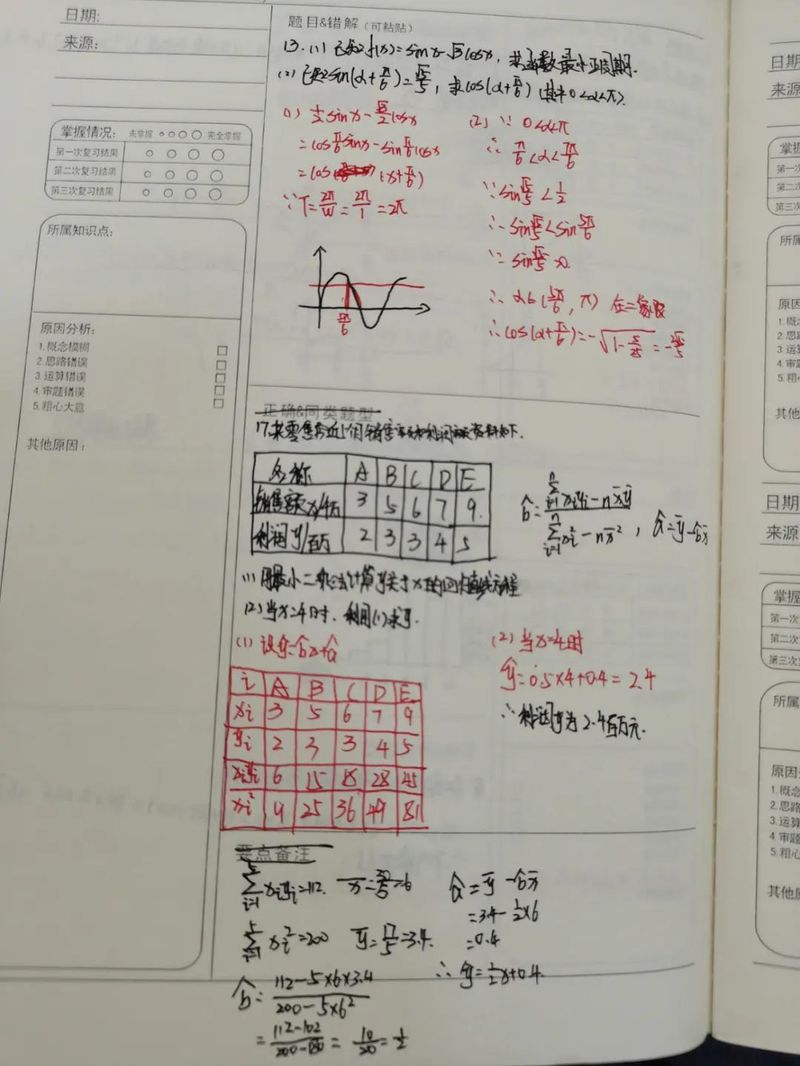 日期:
来源:
掌握情况: 未掌握 ○○○○ 完全掌握
第一次复习结果 ○ ○ ○ ○
第二次复习结果 ○ ○ ○ ○
第三次复习结果 ○ ○ ○ ○
所属知识点:
原因分析:
1.概念模糊 □
2.思路错误 □
3.运算错误 □
4.审题错误 □
5.粗心大意 □
其他原因:
题目&错解 (可粘贴)
13.(1) 已知f(x)=sinx-√3cosx, 求函数最小正周期.
(2) 已知sin(α+π/6)=√5/5, 求cos(α+π/6) (其中0<α<π).
(1) 1/2 sinx-√3/2 cosx
=cosπ/6 sinx-sinπ/6 cosx
=cos(x+π/6)
∵T=2π/W=2π/1=2π
5π/6
(2) ∵ 0<α<π
∴ π/6<α<7π/6
∵sin√5/5<1/2
∴sin√5/5<sin5π/6
∵sin√5/5>0
∴α∈(5π/6, π) 在二象限
∴cos(α+π/6)=-√(1-5/25)=-2√5/5
正确&同类题型
17.某零售店近5个月销售额和利润额资料如下.
名称 A B C D E
销售额x/千万 3 5 6 7 9
利润y/百万 2 3 3 4 5
b̂=(Σⁿᵢ₌₁xᵢyᵢ-nx̄ȳ)/(Σⁿᵢ₌₁xᵢ²-nx̄²), â=ȳ-b̂x̄
(1) 用最小二乘法计算y关于x的回归直线方程
(2) 当x=4时, 利用(1)求y.
(1) 设ŷ=b̂x+â
i A B C D E
xi 3 5 6 7 9
yi 2 3 3 4 5
xiyi 6 15 18 28 45
xi² 9 25 36 49 81
(2) 当x=4时
ŷ=0.5×4+0.4=2.4
∴利润y为2.4百万元.
要点备注
Σ⁵ᵢ₌₁xiyi=112 x̄=30/5=6
Σ⁵ᵢ₌₁xi²=200 ȳ=17/5=3.4.
b̂=(112-5×6×3.4)/(200-5×6²)
=(112-102)/(200-180)=10/20=1/2
â=ȳ-b̂x̄
=3.4-1/2×6
=0.4
∴ŷ=1/2x+0.4
日期
来源
掌握
第一
第二
第三次
所属
原因分
1.概念
2.思路
3.运算
4.审题
5.粗心
其他
日期
来源
掌握
第一次
第二次
第三次
所属
原因分
1.概念
2.思路
3.运算
4.审题
5.粗心
其他